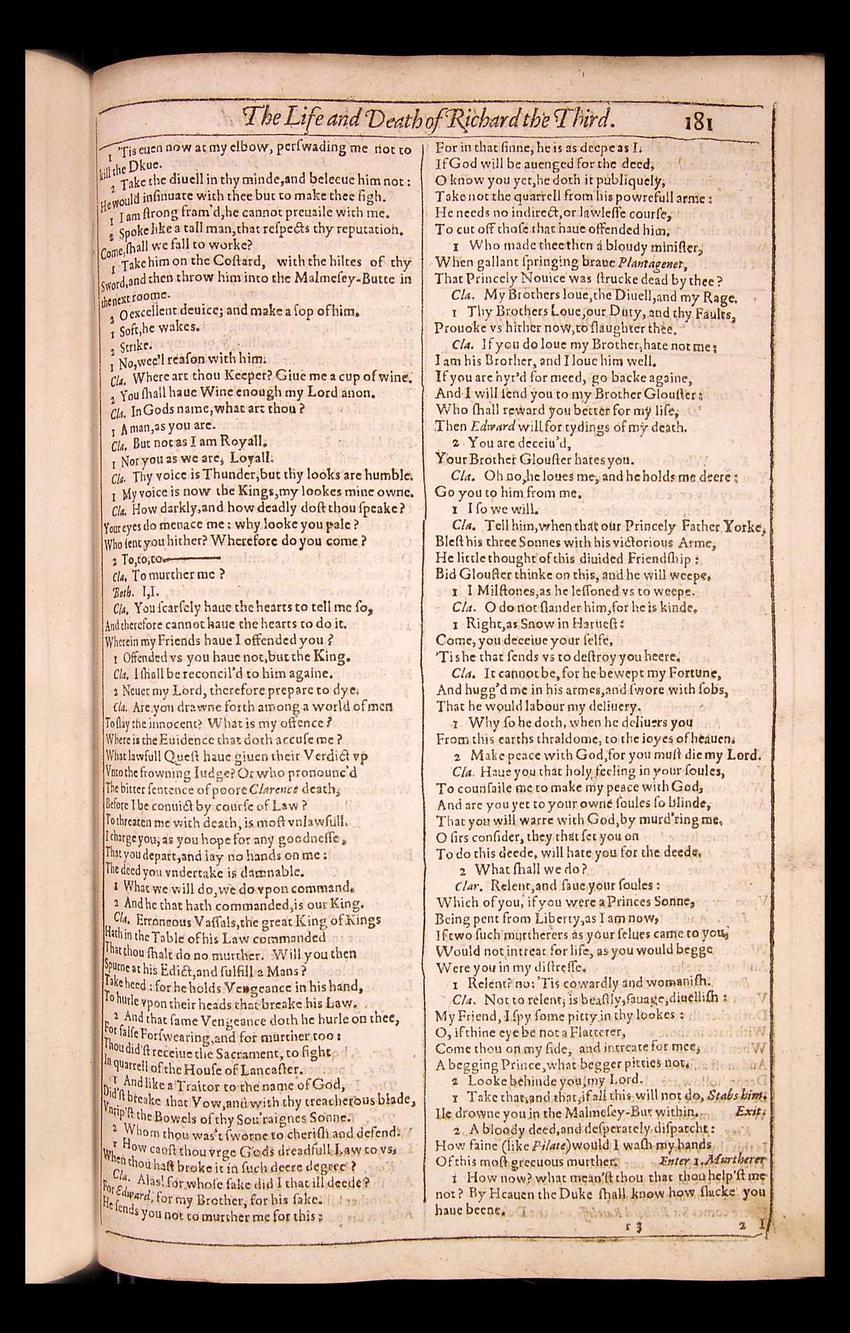 The Life and Death of Richard the Third. 181
1 'Tis euen now at my elbow, perſwading me not to
kill the Dkue.
2 Take the diuell in thy minde,and beleeue him not:
He would inſinuate with thee but to make thee ſigh.
1 I am ſtrong fram'd,he cannot preuaile with me.
2 Spoke like a tall man,that reſpects thy reputation.
Come,ſhall we fall to worke?
1 Take him on the Coſtard, with the hiltes of thy
Sword,and then throw him into the Malmeſey-Butte in
the next roome.
2 O excellent deuice; and make a ſop of him.
1 Soft,he wakes.
2 Strike.
1 No,wee'l reaſon with him.
Cla. Where art thou Keeper? Giue me a cup of wine.
2 You ſhall haue Wine enough my Lord anon.
Cla. In Gods name,what art thou?
1 A man,as you are.
Cla. But not as I am Royall.
1 Nor you as we are, Loyall.
Cla. Thy voice is Thunder,but thy looks are humble.
1 My voice is now the Kings,my lookes mine owne.
Cla. How darkly,and how deadly doſt thou ſpeake?
Your eyes do menace me: why looke you pale?
Who ſent you hither? Wherefore do you come?
2 To,to,to———
Cla. To murther me?
Both. I,I.
Cla. You ſcarſely haue the hearts to tell me ſo,
And therefore cannot haue the hearts to do it.
Wherein my Friends haue I offended you?
1 Offended vs you haue not,but the King.
Cla. I ſhall be reconcil'd to him againe.
2 Neuer my Lord, therefore prepare to dye.
Cla. Are you drawne forth among a world of men
To ſlay the innocent? What is my offence?
Where is the Euidence that doth accuſe me?
What lawfull Queſt haue giuen their Verdict vp
Vnto the frowning Iudge? Or who pronounc'd
The bitter ſentence of poore Clarence death,
Before I be conuict by courſe of Law?
To threaten me with death, is moſt vnlawfull.
I charge you, as you hope for any goodneſſe,
That you depart,and lay no hands on me:
The deed you vndertake is damnable.
1 What we will do,we do vpon command.
2 And he that hath commanded,is our King.
Cla. Erroneous Vaſſals,the great King of Kings
Hath in the Table of his Law commanded
That thou ſhalt do no murther. Will you then
Spurne at his Edict,and fulfill a Mans?
Take heed: for he holds Vengeance in his hand,
To hurle vpon their heads that breake his Law.
2 And that ſame Vengeance doth he hurle on thee,
For falſe Forſwearing,and for murther too:
Thou did'ſt receiue the Sacrament, to fight
In quarrell of the Houſe of Lancaſter.
1 And like a Traitor to the name of God,
Did'ſt breake that Vow,and with thy treacherous blade,
Vnrip'ſt the Bowels of thy Sou'raignes Sonne.
2 Whom thou was't ſworne to cheriſh and defend.
1 How canſt thou vrge Gods dreadfull Law to vs,
When thou haſt broke it in ſuch deere degree?
Cla. Alas! for whoſe ſake did I that ill deede?
For Edward, for my Brother, for his ſake.
He ſends you not to murther me for this:
For in that ſinne, he is as deepe as I.
If God will be auenged for the deed,
O know you yet,he doth it publiquely,
Take not the quarrell from his powrefull arme:
He needs no indirect,or lawleſſe courſe,
To cut off thoſe that haue offended him.
1 Who made thee then a bloudy miniſter,
When gallant ſpringing braue Plantagenet,
That Princely Nouice was ſtrucke dead by thee?
Cla. My Brothers loue,the Diuell,and my Rage.
1 Thy Brothers Loue,our Duty,and thy Faults,
Prouoke vs hither now,to ſlaughter thee.
Cla. If you do loue my Brother,hate not me:
I am his Brother, and I loue him well.
If you are hyr'd for meed, go backe againe,
And I will ſend you to my Brother Glouſter:
Who ſhall reward you better for my life,
Then Edward will for tydings of my death.
2 You are deceiu'd,
Your Brother Glouſter hates you.
Cla. Oh no,he loues me, and he holds me deere:
Go you to him from me.
1 I ſo we will.
Cla. Tell him,when that our Princely Father Yorke,
Bleſt his three Sonnes with his victorious Arme,
He little thought of this diuided Friendſhip:
Bid Glouſter thinke on this, and he will weepe.
1 I Milſtones,as he leſſoned vs to weepe.
Cla. O do not ſlander him,for he is kinde.
1 Right,as Snow in Harueſt:
Come, you deceiue your ſelfe,
'Tis he that ſends vs to deſtroy you heere.
Cla. It cannot be, for he bewept my Fortune,
And hugg'd me in his armes,and ſwore with ſobs,
That he would labour my deliuery.
1 Why ſo he doth, when he deliuers you
From this earths thraldome, to the ioyes of heauen.
2 Make peace with God,for you muſt die my Lord.
Cla. Haue you that holy feeling in your ſoules,
To counſaile me to make my peace with God,
And are you yet to your owne ſoules ſo blinde,
That you will warre with God,by murd'ring me.
O ſirs conſider, they that ſet you on
To do this deede, will hate you for the deede.
2 What ſhall we do?
Clar. Relent,and ſaue your ſoules:
Which of you, if you were a Princes Sonne,
Being pent from Liberty,as I am now,
If two ſuch murtherers as your ſelues came to you,
Would not intreat for life, as you would begge
Were you in my diſtreſſe.
1 Relent? no: 'Tis cowardly and womaniſh.
Cla. Not to relent, is beaſtly,ſauage,diuelliſh:
My Friend, I ſpy ſome pitty in thy lookes:
O, if thine eye be not a Flatterer,
Come thou on my ſide, and intreate for mee,
A begging Prince,what begger pitties not.
2 Looke behinde you,my Lord.
1 Take that,and that,if all this will not do, Stabs him.
Ile drowne you in the Malmeſey-But within. Exit.
2 A bloody deed,and deſperately diſpatcht:
How faine (like Pilate) would I waſh my hands
Of this moſt greeuous murther. Enter 1.Murtherer
1 How now? what mean'ſt thou that thou help'ſt me
not? By Heauen the Duke ſhall know how ſlacke you
haue beene.
r 3 2 I